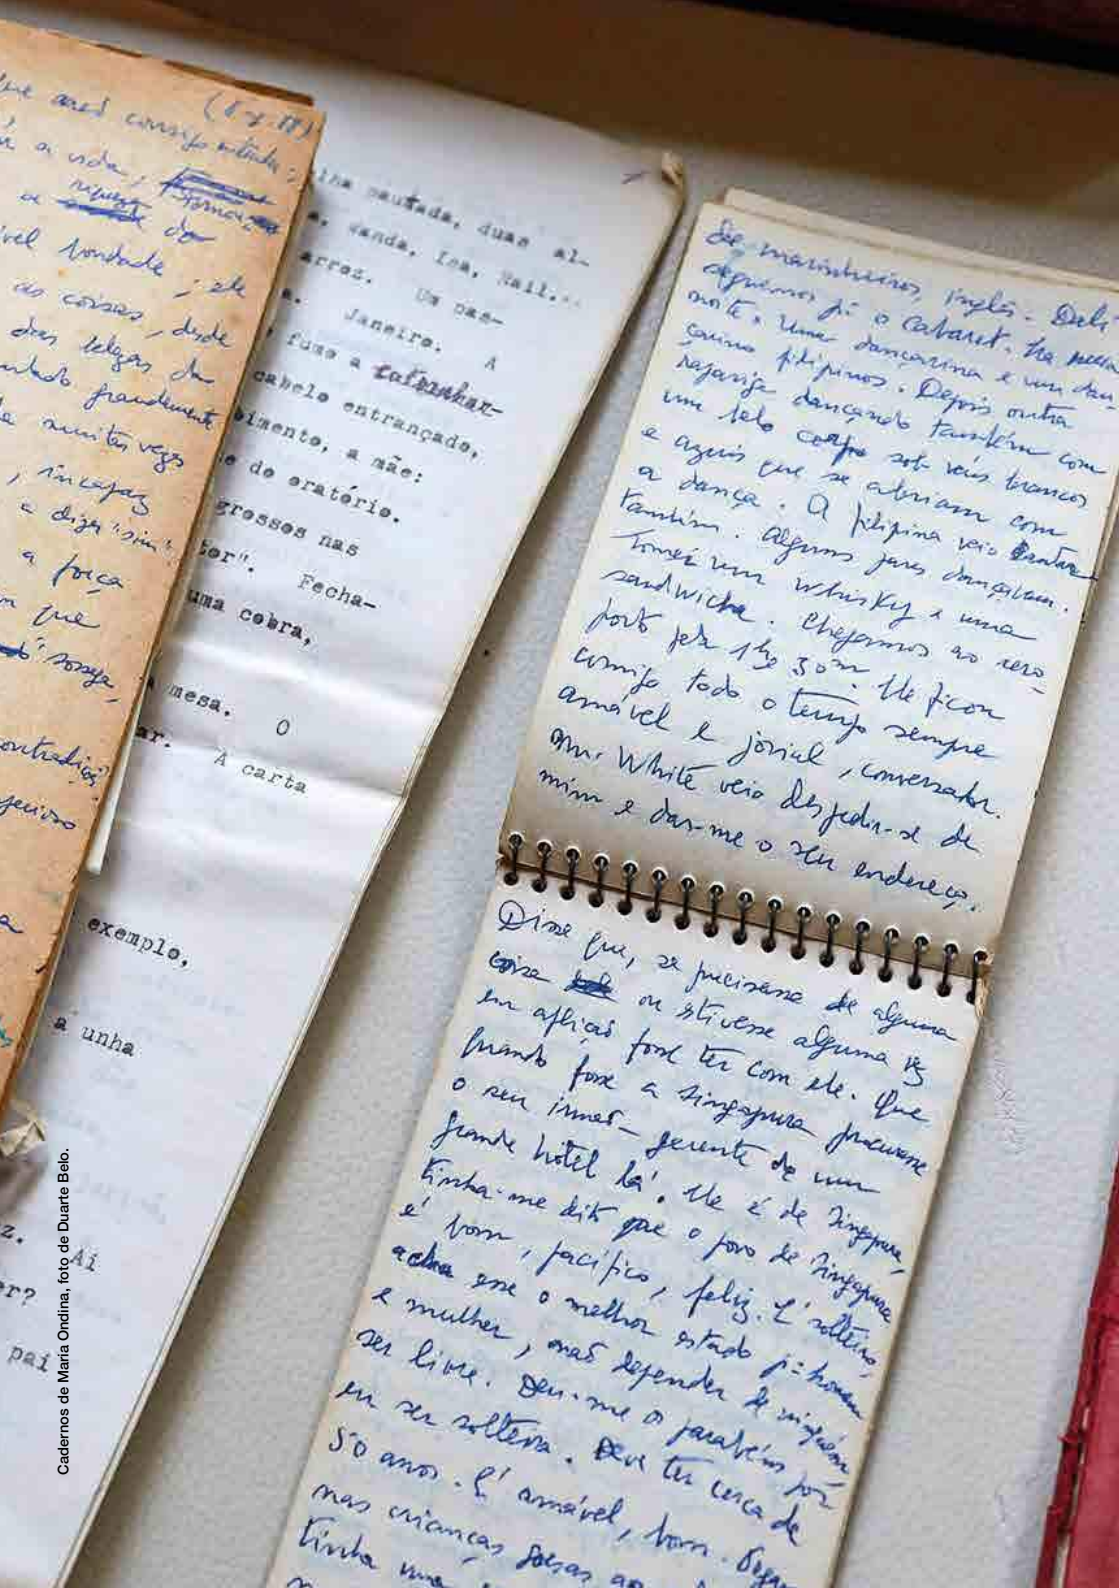 (
que não consigo
a vida,
riqueza
a do
ível bondade; ele
as coisas, desde
das belezas da
grandemente
muitas vezes
, incapaz
a dizer "sim"
a força
que
sossega,
ontradiç
a
inha pautada, duas al-
a, Wanda, Isa, Nail...
arroz. Um pas-
a. Janeiro. A
, fumo a
cabelo entrançado,
bimento, a mãe:
e de oratório.
grossos nas
ter". Fecha-
uma cobra,
a mesa. O
ar. A carta
exemplo,
a unha
z. Ai
er?
pai
de marinheiros, inglês. Deli-
neste. Uma dançarina e um dan-
çarino filipinos. Depois outra
rapariga dançando também com
um belo corpo sob véus brancos
e azuis que se abriam com
a dança. A filipina veio
também. Alguns pares dançavam.
Tomei um whisky e uma
sandwich. Chegamos ao aero-
porto pela 1h e 30m. Ele ficou
comigo todo o tempo sempre
amável e jovial, conversador.
Mr. White veio despedir-se de
mim e dar-me o seu endereço.
Disse que, se precisasse de alguma
coisa ou estivesse alguma vez
em aflição fosse ter com ele. Que
quando fosse a Singapura procurasse
o seu irmão - gerente de um
grande hotel lá. Ele é de Singapura,
tinha-me dito que o povo de Singapura
é bom, pacífico, feliz. É solteiro,
acha esse o melhor estado p= homem
e mulher, não depender de ninguém
ser livre. Deu-me os parabéns por
eu ser solteira. Deve ter cerca de
50 anos. É amável, bom.
nas crianças
tinha uma
Cadernos de Maria Ondina, foto de Duarte Belo.